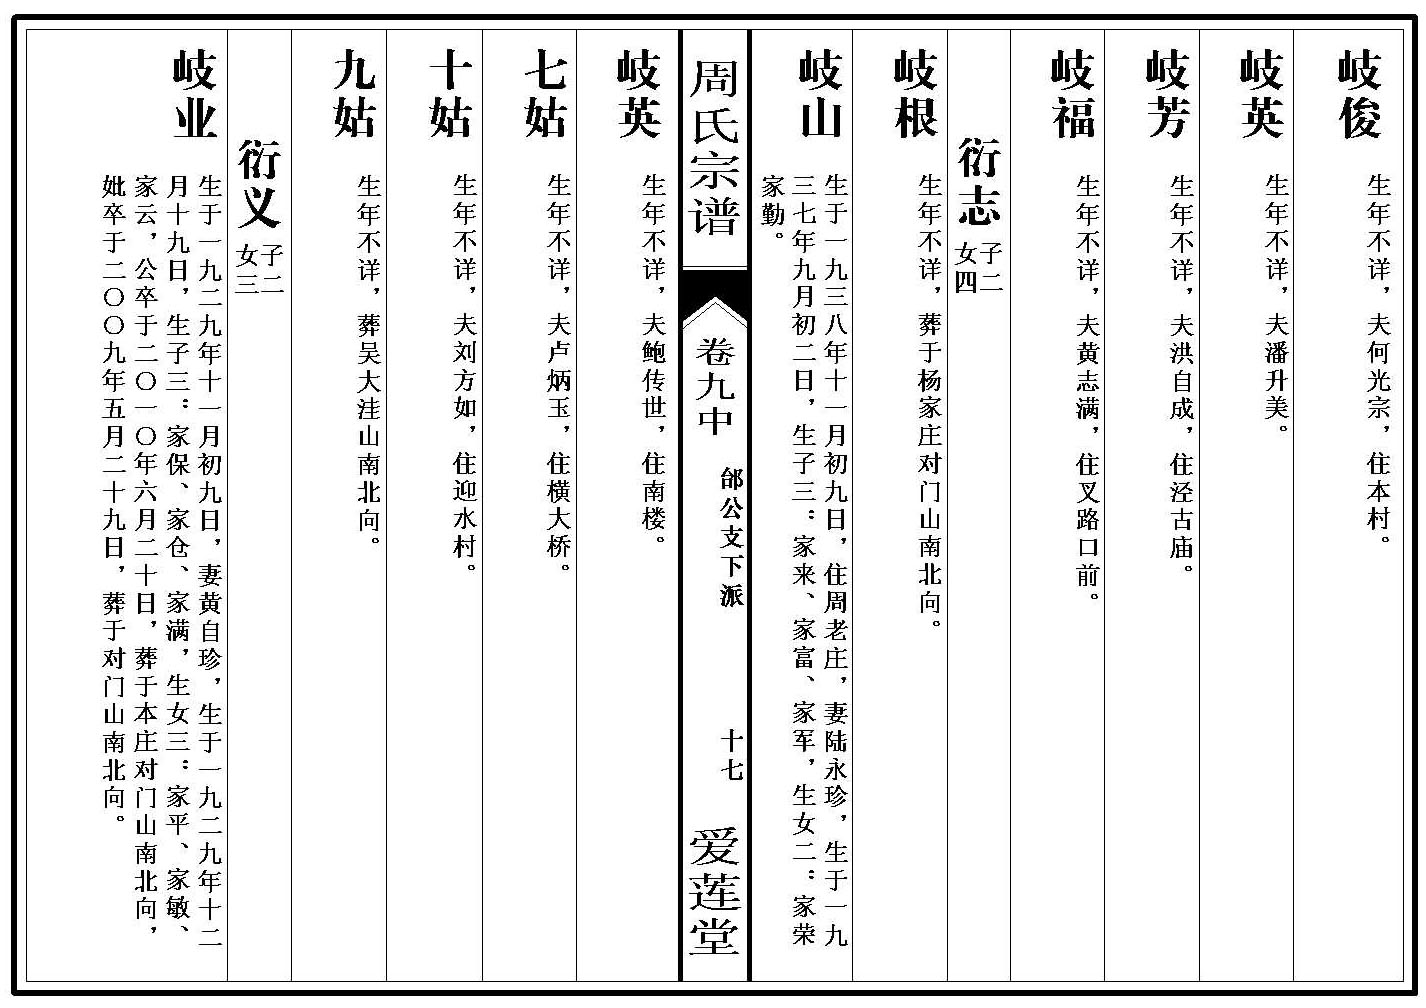 岐俊
生年不详，夫何光宗，住本村。
岐英
生年不详，夫潘升美。
岐芳
生年不详，夫洪自成，住泾古庙。
岐福
生年不详，夫黄志满，住叉路口前。
衍志
子二
女四
岐根
生年不详，葬于杨家庄对门山南北向。
岐山
生于一九三八年十一月初九日，住周老庄，妻陆永珍，生于一九
三七年九月初二日，生子三：家来、家富、家军，生女二：家荣
家勤。
周氏宗谱
卷九中
邰公支下派
十七
爱莲堂
岐英
生年不详，夫鲍传世，住南楼。
七姑
生年不详，夫卢炳玉，住横大桥。
十姑
生年不详，夫刘方如，住迎水村。
九姑
生年不详，葬吴大洼山南北向。
衍义
子二
女三
岐业
生于一九二九年十一月初九日，妻黄自珍，生于一九二九年十二
月十九日，生子三：家保、家仓、家满，生女三：家平、家敏、
家云，公卒于二〇一〇年六月二十日，葬于本庄对门山南北向，
妣卒于二〇〇九年五月二十九日，葬于对门山南北向。